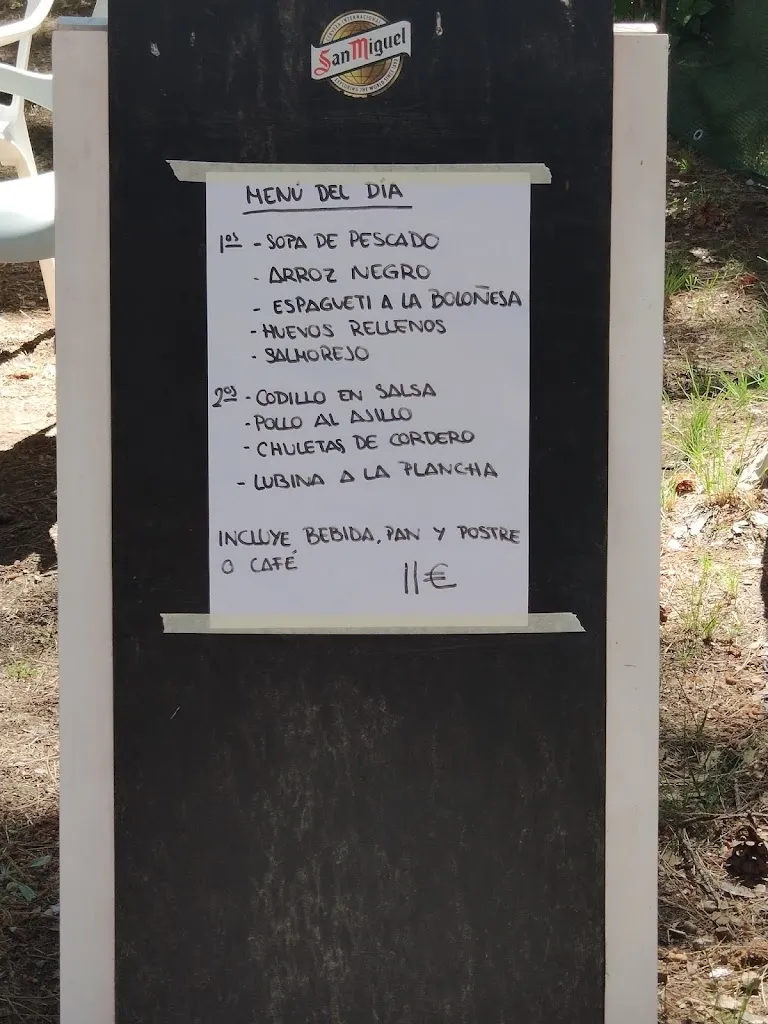 San Miguel
MENÚ DEL DÍA
1os - SOPA DE PESCADO
- ARROZ NEGRO
- ESPAGUETI A LA BOLOÑESA
- HUEVOS RELLENOS
- SALMOREJO
2os - CODILLO EN SALSA
- POLLO AL AJILLO
- CHULETAS DE CORDERO
- LUBINA A LA PLANCHA
INCLUYE BEBIDA, PAN Y POSTRE
O CAFÉ
11€